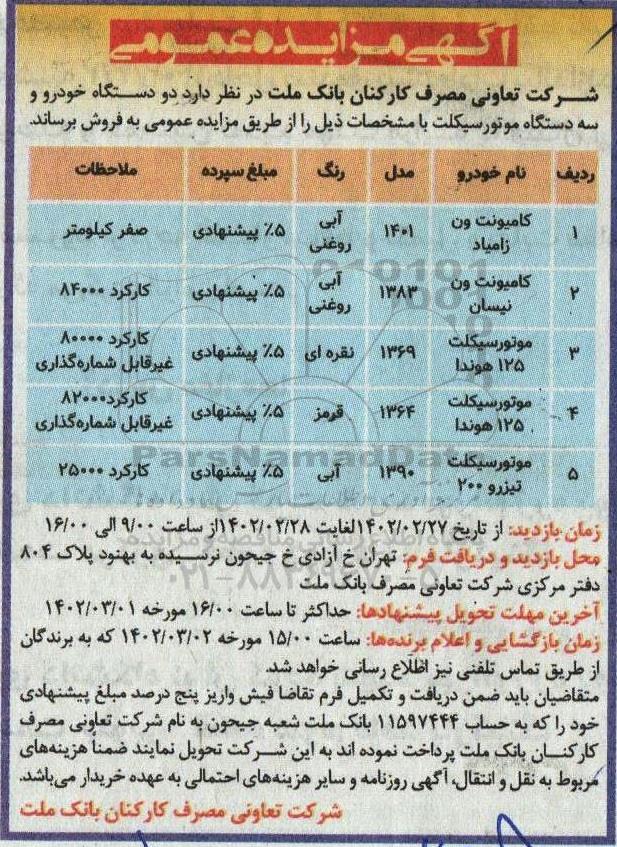 آگهی مزایده عمومی
شرکت تعاونی مصرف کارکنان بانک ملت در نظر دارد دو دستگاه خودرو و
سه دستگاه موتورسیکلت با مشخصات ذیل را از طریق مزایده عمومی به فروش برساند.
ردیف نام خودرو مدل رنگ مبلغ سپرده ملاحظات
۱ کامیونت ون زامیاد ۱۴۰۱ آبی روغنی ۵٪ پیشنهادی صفر کیلومتر
۲ کامیونت ون نیسان ۱۳۸۳ آبی روغنی ۵٪ پیشنهادی کارکرد ۸۴۰۰۰
۳ موتورسیکلت ۱۲۵ هوندا ۱۳۶۹ نقره ای ۵٪ پیشنهادی کارکرد ۸۰۰۰۰ غیرقابل شماره‌گذاری
۴ موتورسیکلت ۱۲۵ هوندا ۱۳۶۴ قرمز ۵٪ پیشنهادی کارکرد۸۲۰۰۰ غیرقابل شماره‌گذاری
۵ موتورسیکلت تیزرو ۲۰۰ ۱۳۹۰ آبی ۵٪ پیشنهادی کارکرد ۲۵۰۰۰
ParsNamadData
زمان بازدید: از تاریخ ۱۴۰۲/۰۲/۲۷لغایت ۱۴۰۲/۰۲/۲۸از ساعت ۹/۰۰ الی ۱۶/۰۰
محل بازدید و دریافت فرم: تهران خ آزادی خ جیحون نرسیده به بهنود پلاک ۸۰۴
دفتر مرکزی شرکت تعاونی مصرف بانک ملت
آخرین مهلت تحویل پیشنهادها: حداکثر تا ساعت ۱۶/۰۰ مورخه ۱۴۰۲/۰۳/۰۱
زمان بازگشایی و اعلام برنده‌ها: ساعت ۱۵/۰۰ مورخه ۱۴۰۲/۰۳/۰۲ که به برندگان
از طریق تماس تلفنی نیز اطلاع رسانی خواهد شد.
متقاضیان باید ضمن دریافت و تکمیل فرم تقاضا فیش واریز پنج درصد مبلغ پیشنهادی
خود را که به حساب ۱۱۵۹۷۴۴۴ بانک ملت شعبه جیحون به نام شرکت تعاونی مصرف
کارکنان بانک ملت پرداخت نموده اند به این شرکت تحویل نمایند ضمناً هزینه‌های
مربوط به نقل و انتقال، آگهی روزنامه و سایر هزینه‌های احتمالی به عهده خریدار می‌باشد.
شرکت تعاونی مصرف کارکنان بانک ملت